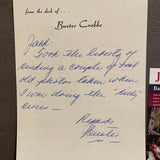 from the desk of ...
Buster Crabbe
Jack
Took the liberty of
sending a couple of
old photos taken when
I was doing the "Billy"
ones —
Regards
Buster
J